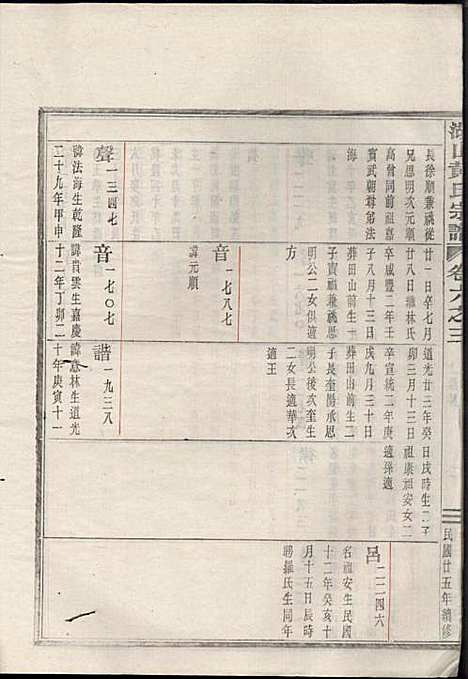 山黃氏宗譜
卷八之三
民國廿五年續修
長徐順兼祧從
兄思明次元順
高曾同前祖嘉
賓武朝尊第法
海
聲一三四七
諱法海生乾隆
二十九年甲申
廿一日卒七月
廿八日娶林氏
卒咸豐二年壬
子八月十三日
葬田山前生二
子寶福兼祧思
明公二女俱適
方
音一七八七
諱元順
音一七〇七
諱賁雲生嘉慶
十二年丁卯二
道光廿三年癸
卯三月十三日
卒宣統二年庚
戌九月三十日
葬田山前生二
子長奎陽承思
明公後次奎生
二女長適華次
適王
諧一九三八
諱意林生道光
十年庚寅十一
日戌時生二子
祖康祖安女二
適孫適
呂二二四六
名祖安生民國
十二年癸亥十
月十五日辰時
聘羅氏生同年